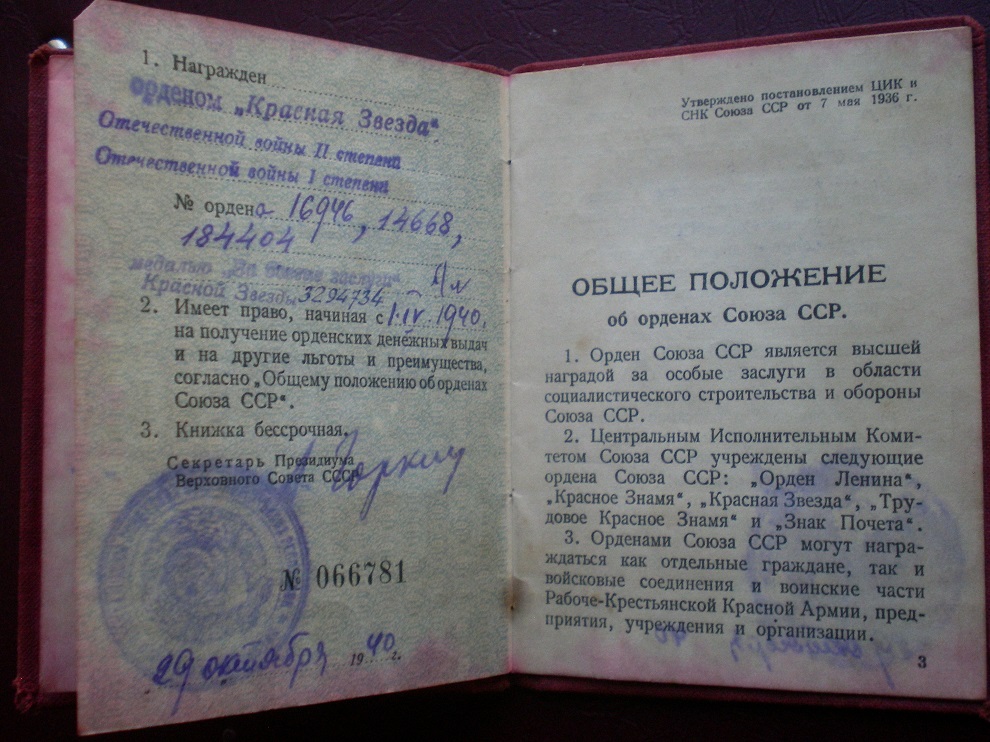 1. Награжден
орденом „Красная Звезда“
Отечественной войны II степени
Отечественной войны I степени
№ ордена 16946, 14668,
184404
медалью „За боевые заслуги“
Красной Звезды 3294734
2. Имеет право, начиная с 1.IV.1940.
на получение орденских денежных выдач
и на другие льготы и преимущества,
согласно „Общему положению об орденах
Союза ССР“.
3. Книжка бессрочная.
Секретарь Президиума
Верховного Совета СССР
Горкин
№ 066781
29 октября 1940 г.
Утверждено постановлением ЦИК и
СНК Союза ССР от 7 мая 1936 г.
ОБЩЕЕ ПОЛОЖЕНИЕ
об орденах Союза ССР.
1. Орден Союза ССР является высшей
наградой за особые заслуги в области
социалистического строительства и обороны
Союза ССР.
2. Центральным Исполнительным Коми-
тетом Союза ССР учреждены следующие
ордена Союза ССР: „Орден Ленина“,
„Красное Знамя“, „Красная Звезда“, „Тру-
довое Красное Знамя“ и „Знак Почета“.
3. Орденами Союза ССР могут награ-
ждаться как отдельные граждане, так и
войсковые соединения и воинские части
Рабоче-Крестьянской Красной Армии, пред-
приятия, учреждения и организации.
3